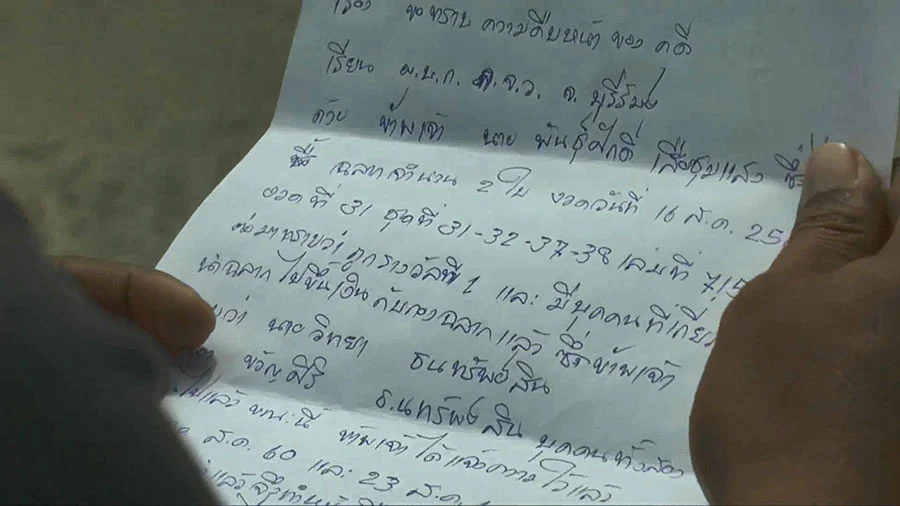 เรื่อง ขอทราบ ความคืบหน้า ของ คดี
เรียน ผ.บ.ก. ภ.จ.ว. จ. บุรีรัมย์
ด้วย ข้าพเจ้า นาย พันธุ์ศักดิ์ เสือชุมแสง ซึ่ง
ซื้อ ฉลากจำนวน 2 ใบ งวดวันที่ 16 ส.ค. 25
งวดที่ 31 ชุดที่ 31-32-37-38 เล่มที่ 715
ต่อมาทราบว่า ถูกรางวัลที่ 1 และ มีบุคคนที่เกี่ยว
นำฉลาก ไปขึ้นเงิน กับกองฉลาก แล้ว ซึ่ง ข้าพเจ้า
ว่า นายวิทยา ธนทรัพย์สิน
ขวัญศิริ ธ.นทรัพย์สิน บุคคนทั้งสอง
ไปแล้ว ข้าพเจ้า ได้ แจ้งความ ไว้แล้ว
ส.ค. 60 และ 23 ส.ค.